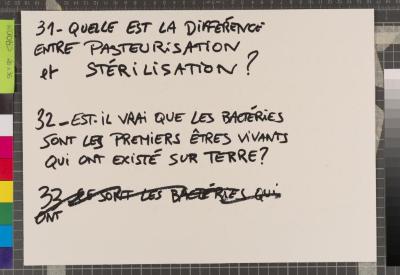 31- QUELLE EST LA DIFFÉRENCE
ENTRE PASTEURISATION
et STÉRILISATION ?
32_EST-IL VRAI QUE LES BACTÉRIES
SONT LES PREMIERS ÊTRES VIVANTS
QUI ONT EXISTÉ SUR TERRE ?
33 CE SONT LES BACTÉRIES QUI
ONT